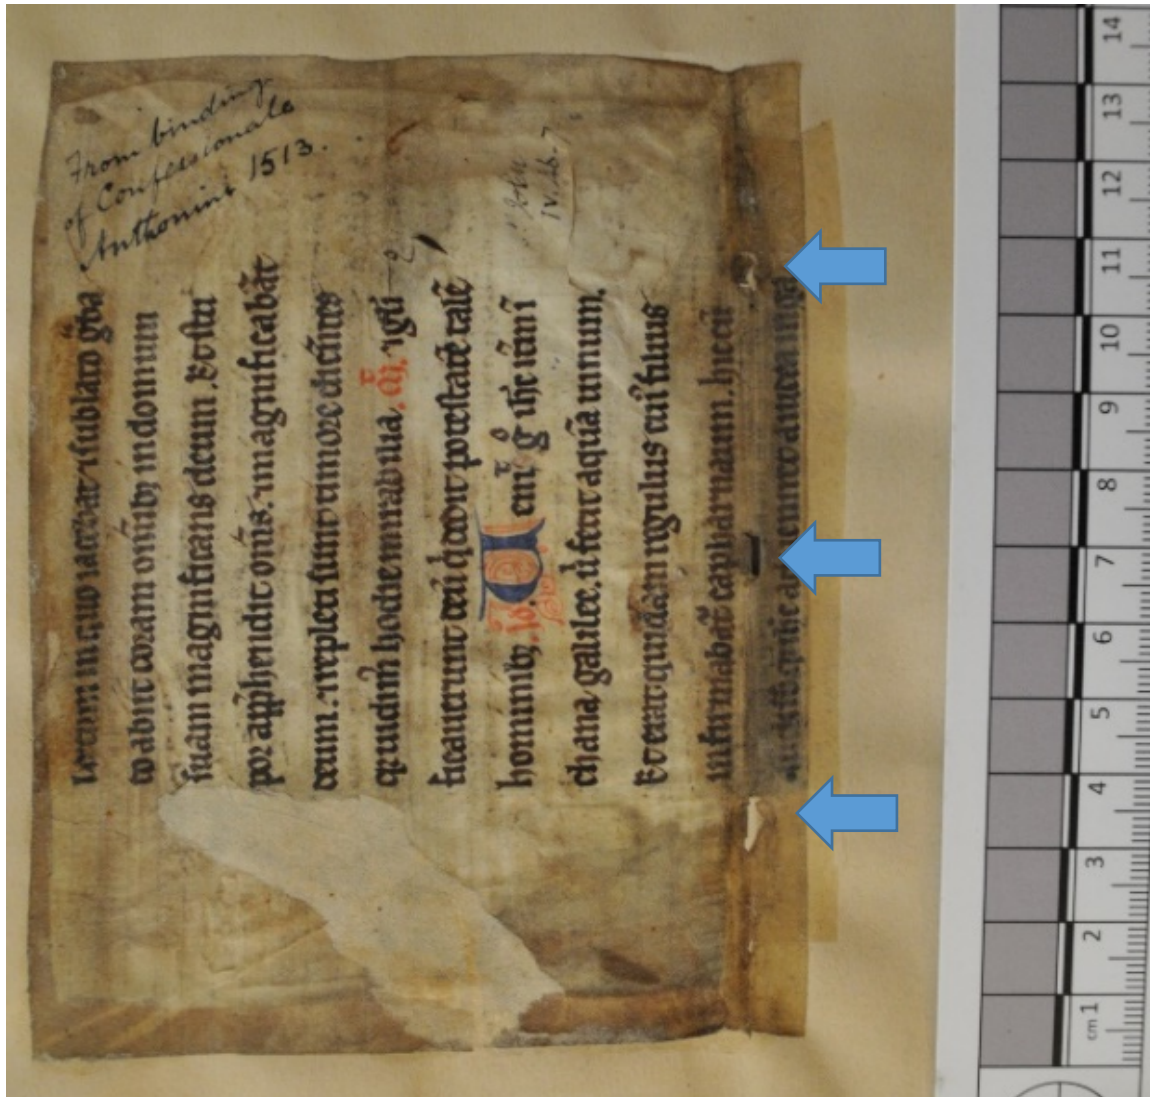 From binding
of Confessionale
Anthonini 1513.
lectum in quo iacebat ⁊ sublato g̃ba
to abiit coram om̃ib; in domum
suam magnificans deum. Et stu
por app̃hendit om̃s. ⁊ magnificabãt
deum. ⁊ repleti sunt timore dicẽtes
uidim̃ hodie mirabilia.
ficauerunt deũ potestatẽ talẽ
hominib; Jo. Uenit gͦ ihc itm̃ i
chana galilee. fecit aquã uinum.
Et erat quidam regulus cui' filius
infirmabat̃ capharnaum. hic cũ
John
IV. 46.
14
13
12
11
10
9
8
7
6
5
4
3
2
cm 1